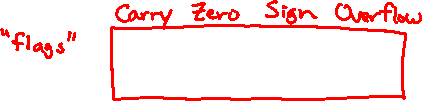 Carry Zero Sign Overflow
"flags"